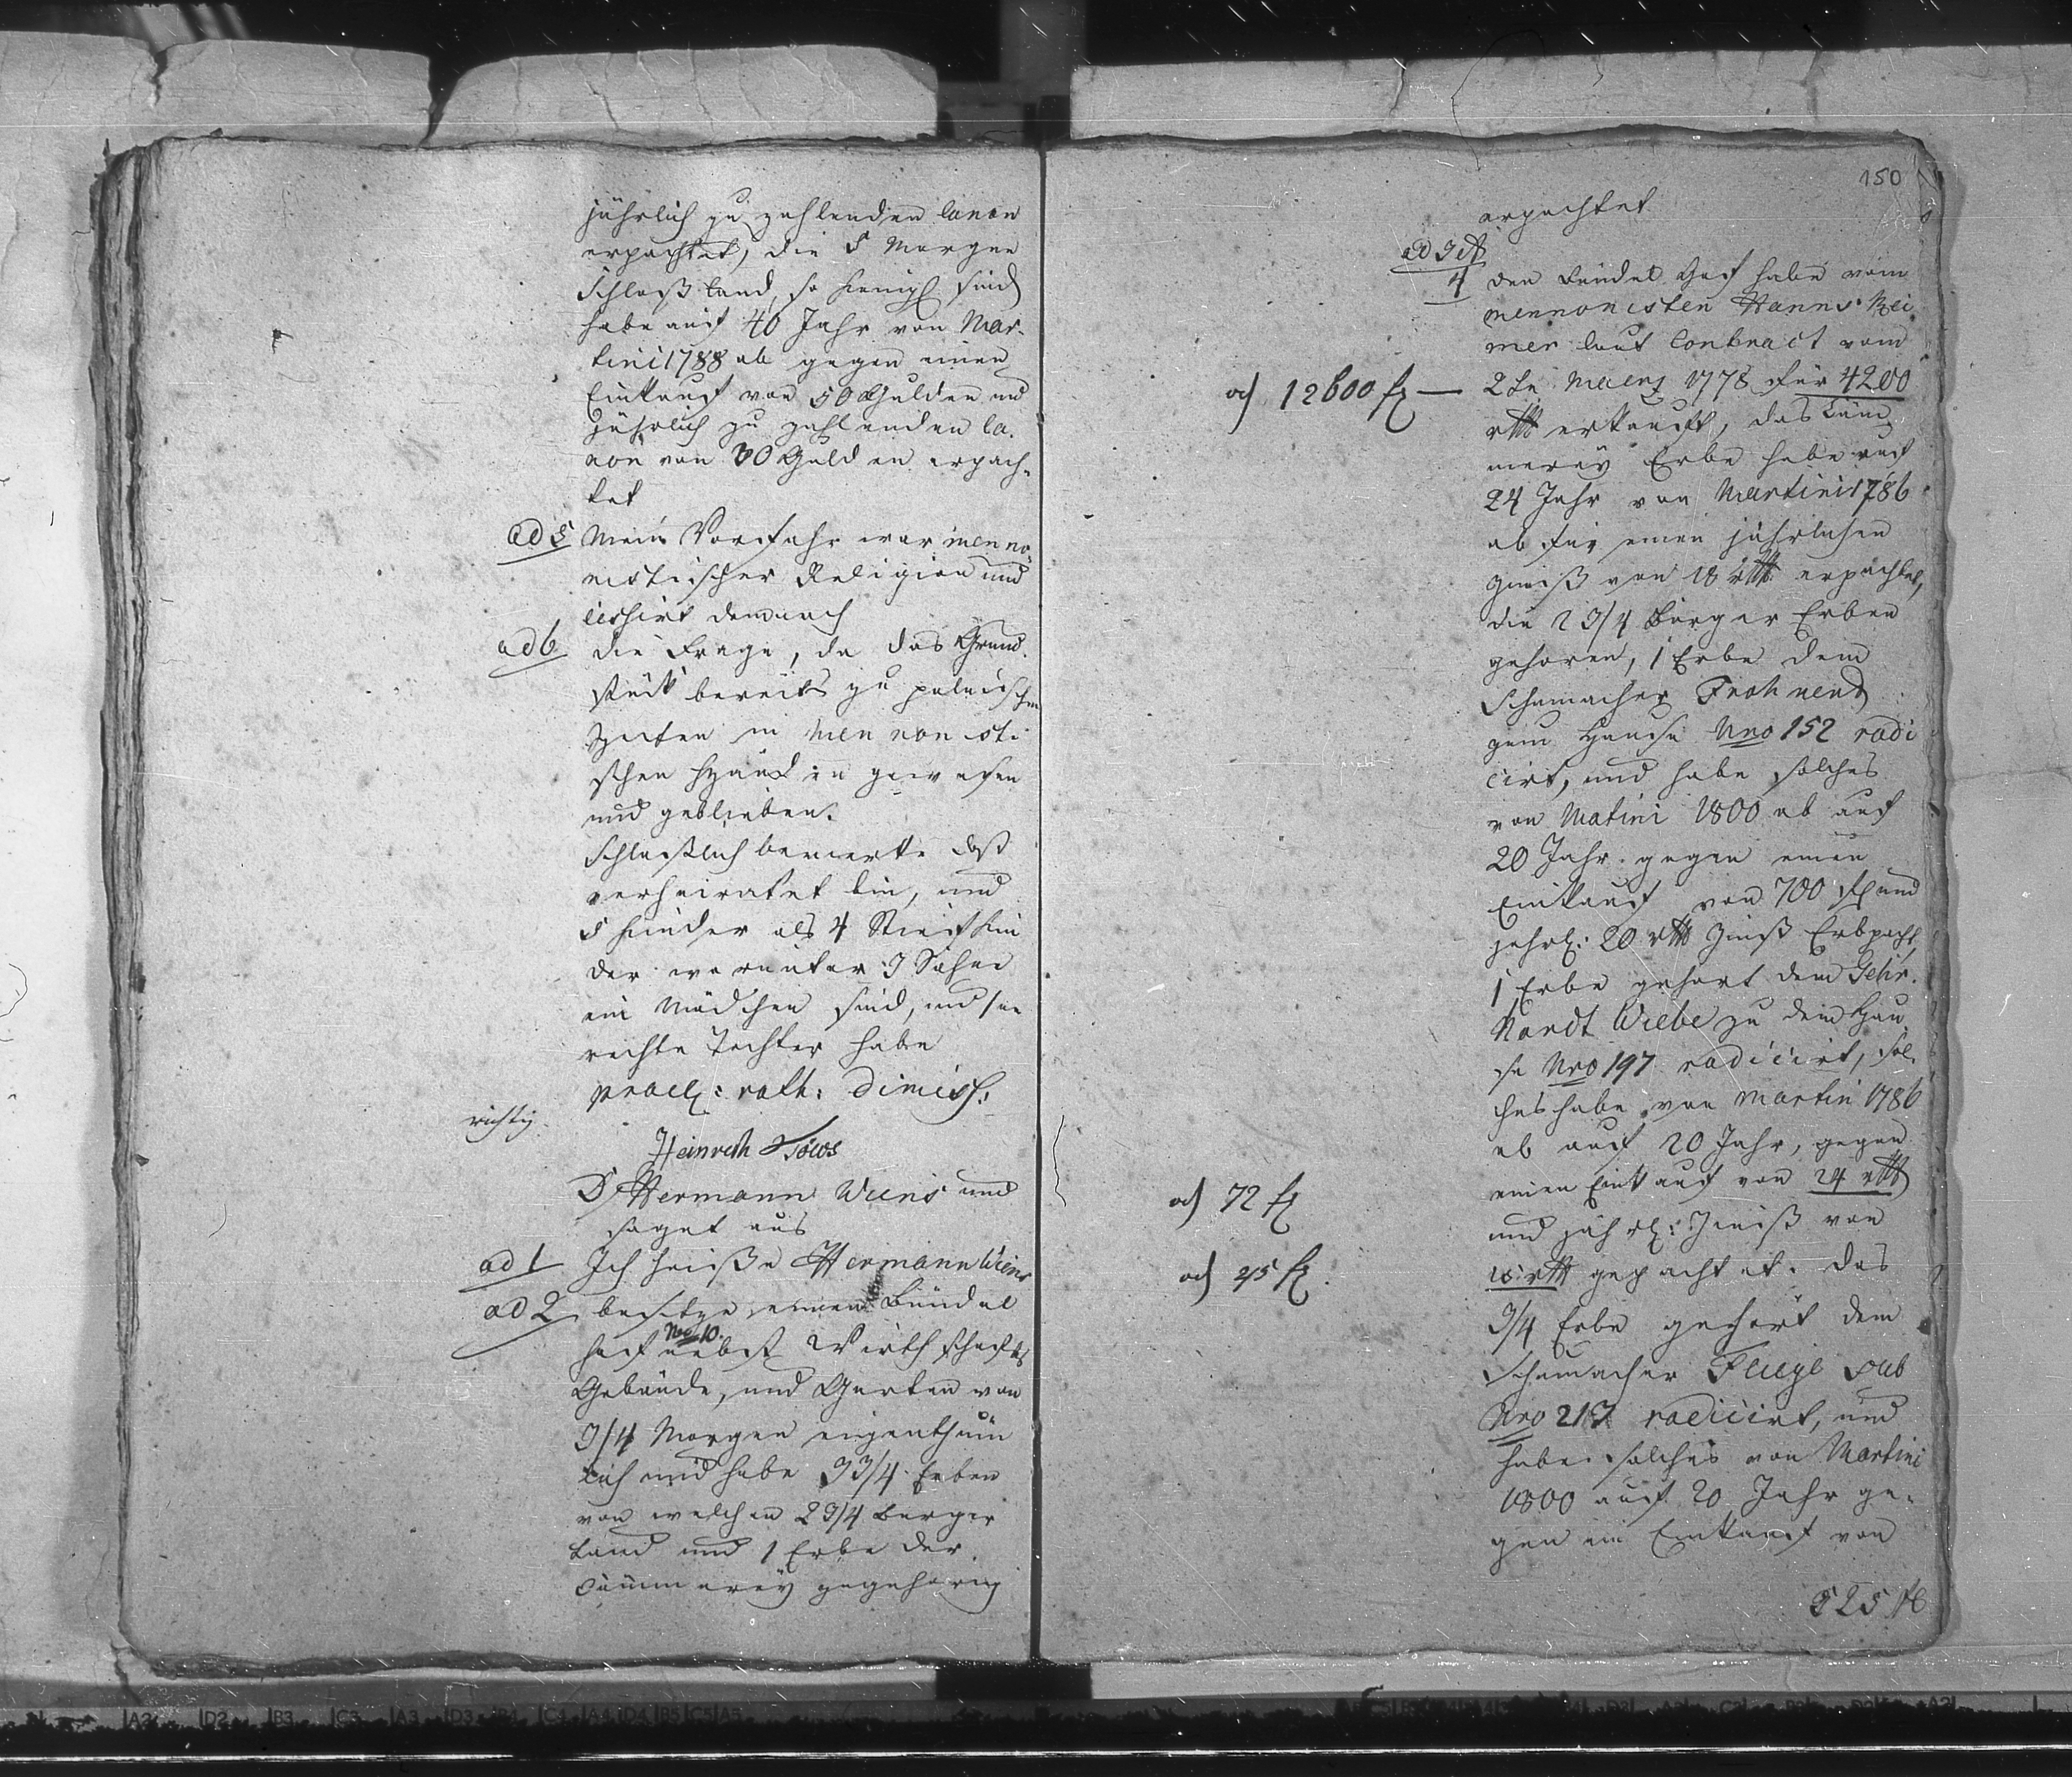 jährlich zu zahlenden Canon
erpachtet, die 5 Morgen
Schloß Land, so henigl sind
habe auf 40 Jahr von Mar-
tini 1788 ab gegen einen
Einkauf von 50 Gulden und
jährlich zu zahlenden Ca-
non von 30 Gulden erpach-
tet
ad 5 Mein Vorfahr war menno
nistischer Religion und
cessirt demnach
ad 6 die Frage, da das Grund-
stück bereits zu polnischen
Zeiten in mennonisti
schen Händen gewesen
und geblieben.
Schlüßlich bemerke daß
verheiratet bin, und
5 Kinder als 4 Stiefkin
der worunter 3 Söhne
ein Mädchen sind, und eine
rechte Tochter habe
prael: rath: dimiss:
richtig.
Heinrich Töws
D Hermann Wiens und
saget aus
ad 1 Ich heiße Hermann Wiens
ad 2 besitze einen Bündel
Nro 10.
hof nebst Wirthschafts
Gebäude, und Garten von
3/4 Morgen eigenthüm
lich und habe 3 3/4 Erben
von welchen 2 3/4 Bürger
Land und 1 Erbe der
Cämmerey gegehörig
150
erpachtet
ad 3 et
4 den Bündel Hof habe vom
mennonisten Hanns Rei
mer laut Contract vom
a) 12600 f — 2te Maerz 1778 für 4200
rthl erkauft, das Cäm
merey Erbe habe auf
24 Jahr von Martini 1786
ab für einen jährlichen
Zinß von 18 rthl erpachtet,
die 2 3/4 Bürger Erben
gehören, 1 Erbe dem
Schumacher Frohnend
zum Hause Nro 152 radi
cirt, und habe solches
von Matini 1800 ab auf
20 Jahr gegen einen
Einkauf von 700 f und
jährl: 20 rthl Zinß Erbpacht,
1 Erbe gehört dem Gehr.
Nandt Wiebe zu dem Hau
se Nro 197 radicirt, sol-
ches habe von Martin 1786
ab auf 20 Jahr, gegen
a) 72 f einen Einkauf von 24 rthl
und jährl: Zinß von
a) 45 f. 15 rthl gepachtet. Das
3/4 Erbe gehört dem
Schumacher Fliege sub
Nro 213 radicirt, und
habe solches von Martini
1800 auf 20 Jahr ge-
gen ein Einkauf von
525 f